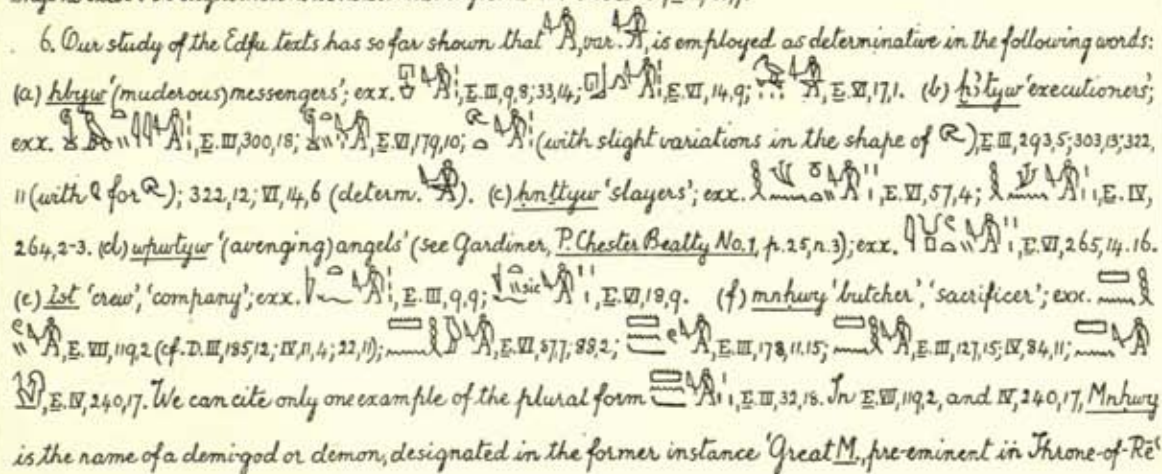 6. Our study of the Edfu texts has so far shown that , var. , is employed as determinative in the following words:
(a) hbyw '(muderous) messengers'; exx. , E. III, 9, 8; 33, 14; , E. VI, 14, 9; , E. VI, 17, 1. (b) ḫꜣtyw 'executioners';
exx. , E. III, 300, 18; , E. VI, 179, 10; (with slight variations in the shape of ), E. III, 293, 5; 303, 13; 322,
11 (with for ); 322, 12; VI, 14, 6 (determ. ). (c) ḥnttyw 'slayers'; exx. , E. VI, 57, 4; , E. IV,
264, 2-3. (d) wpwtyw '(avenging) angels' (see Gardiner, P. Chester Beatty No. 1, p. 25, n. 3); exx. , E. VI, 265, 14. 16.
(e) ist 'crew', 'company'; exx. , E. III, 9, 9; sic , E. VI, 18, 9. (f) mnḥwy 'butcher', 'sacrificer'; exx.
, E. VII, 119, 2 (cf. D. III, 185, 12; IV, 11, 4; 22, 11); , E. VI, 87, 7; 88, 2; , E. III, 178, 11. 15; , E. III, 127, 15; IV, 84, 11;
, E. IV, 240, 17. We can cite only one example of the plural form , E. III, 32, 18. In E. VII, 119, 2, and IV, 240, 17, Mnḥwy
is the name of a demi-god or demon, designated in the former instance 'Great M., pre-eminent in Throne-of-Rēꜥ